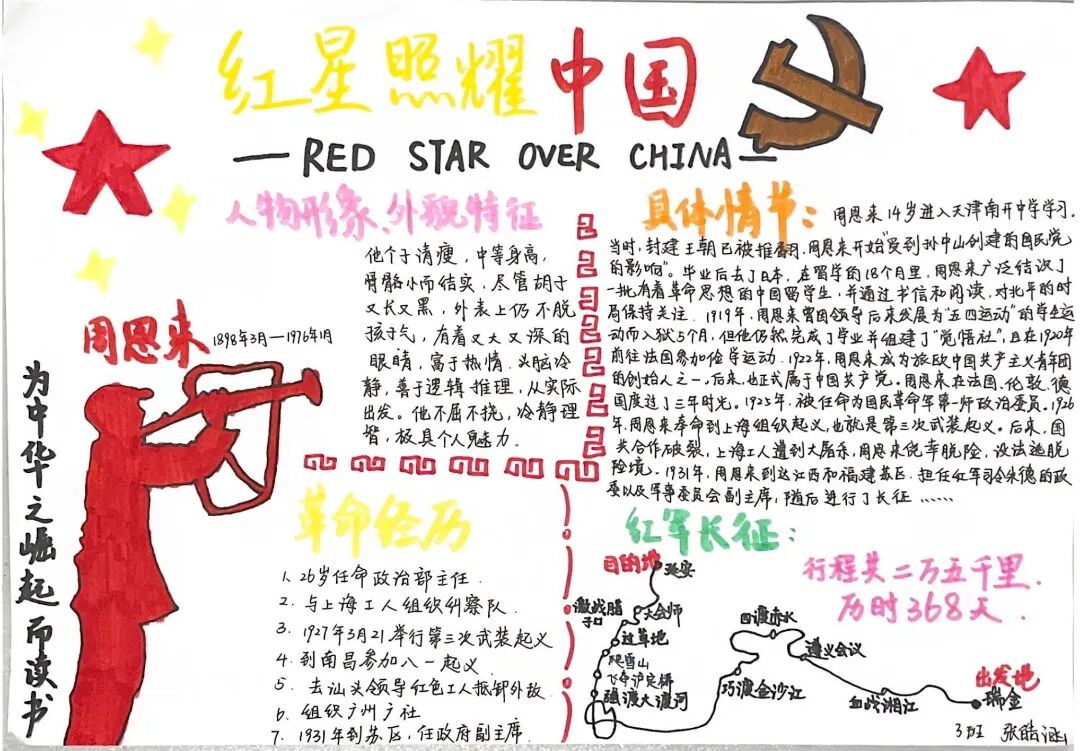 红星照耀中国
—RED STAR OVER CHINA—
人物形象、外貌特征
他个子清瘦，中等身高，
骨骼小而结实，尽管胡子
又长又黑，外表上仍不脱
孩子气，有着又大又深的
眼睛，富于热情．头脑冷
静，善于逻辑推理，从实际
出发。他不屈不挠，冷静理
智，极具个人魅力．
周恩来
1898年3月—1976年1月
为中华之崛起而读书
具体情节：
周恩来14岁进入天津南开中学学习．
当时，封建王朝已被推翻．周恩来开始"受到孙中山创建的国民党
的影响"。毕业后去了日本，在留学的18个月里，周恩来广泛结识了
一批有着革命思想的中国留学生，并通过书信和阅读，对北平的时
局保持关注．1919年，周恩来曾因领导后来发展为"五四运动"的学生运
动而入狱5个月，但他仍然完成了学业并组建了"觉悟社"，且在1920年
前往法国参加俭学运动．1922年，周恩来成为旅欧中国共产主义青年团
的创始人之一。后来，也正式属于中国共产党。周恩来在法国、伦敦、德
国度过了三年时光。1925年，被任命为国民革命军第一师政治委员。1926
年，周恩来奉命到上海组织起义，也就是第三次武装起义。后来，国
共合作破裂，上海工人遭到大屠杀，周恩来侥幸脱险，设法逃脱
险境．1931年，周恩来到达江西和福建苏区，担任红军司令朱德的政
委以及军事委员会副主席，随后进行了长征……
革命经历
1、26岁任命政治部主任．
2．与上海工人组织纠察队．
3．1927年3月21举行第三次武装起义
4．到南昌参加八一起义
5．去汕头领导红色工人抵御外敌．
6．组织广州广社
7．1931年到苏区，任政府副主席．
红军长征：
行程共二万五千里．
历时368天．
目的地
延安
激战腊
子口
大会师
过草地
爬雪山
飞夺泸定桥
强渡大渡河
巧渡金沙江
四渡赤水
遵义会议
血战湘江
出发地
瑞金
3班 张皓